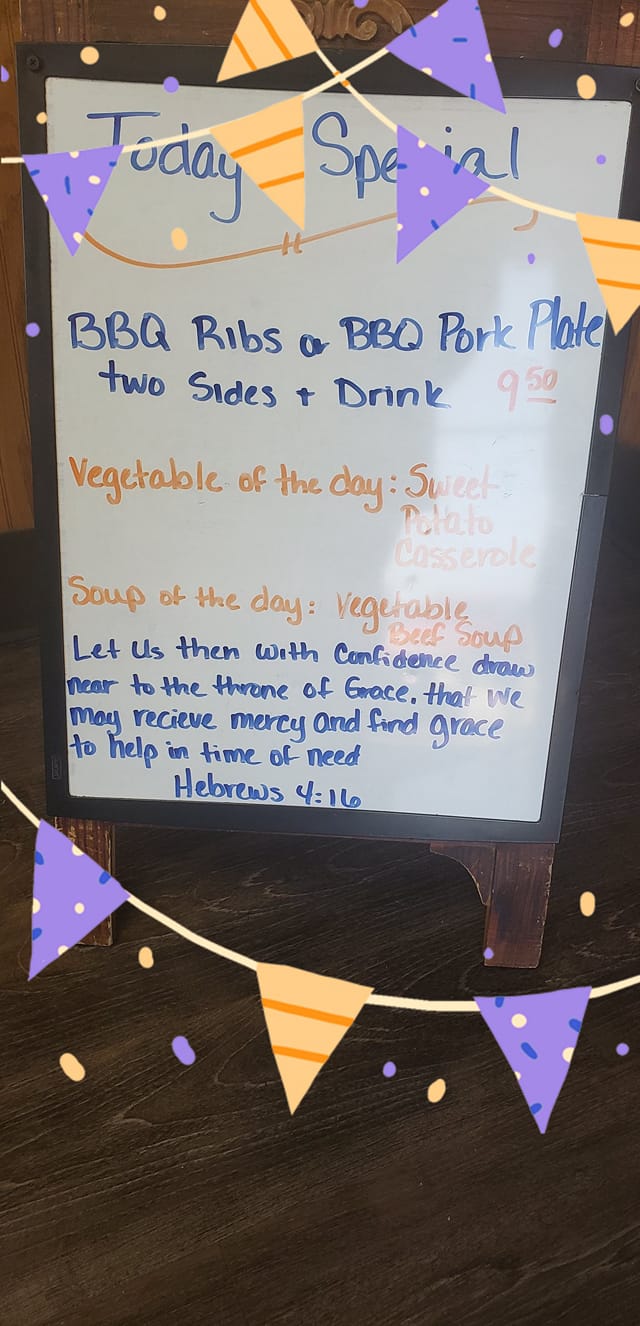 Today Special
BBQ Ribs or BBQ Pork Plate
two Sides + Drink 9 50
Vegetable of the day: Sweet
Potato
Casserole
Soup of the day: Vegetable
Beef Soup
Let Us then with Confidence draw
near to the throne of Grace. that we
may recieve mercy and find grace
to help in time of need
Hebrews 4:16